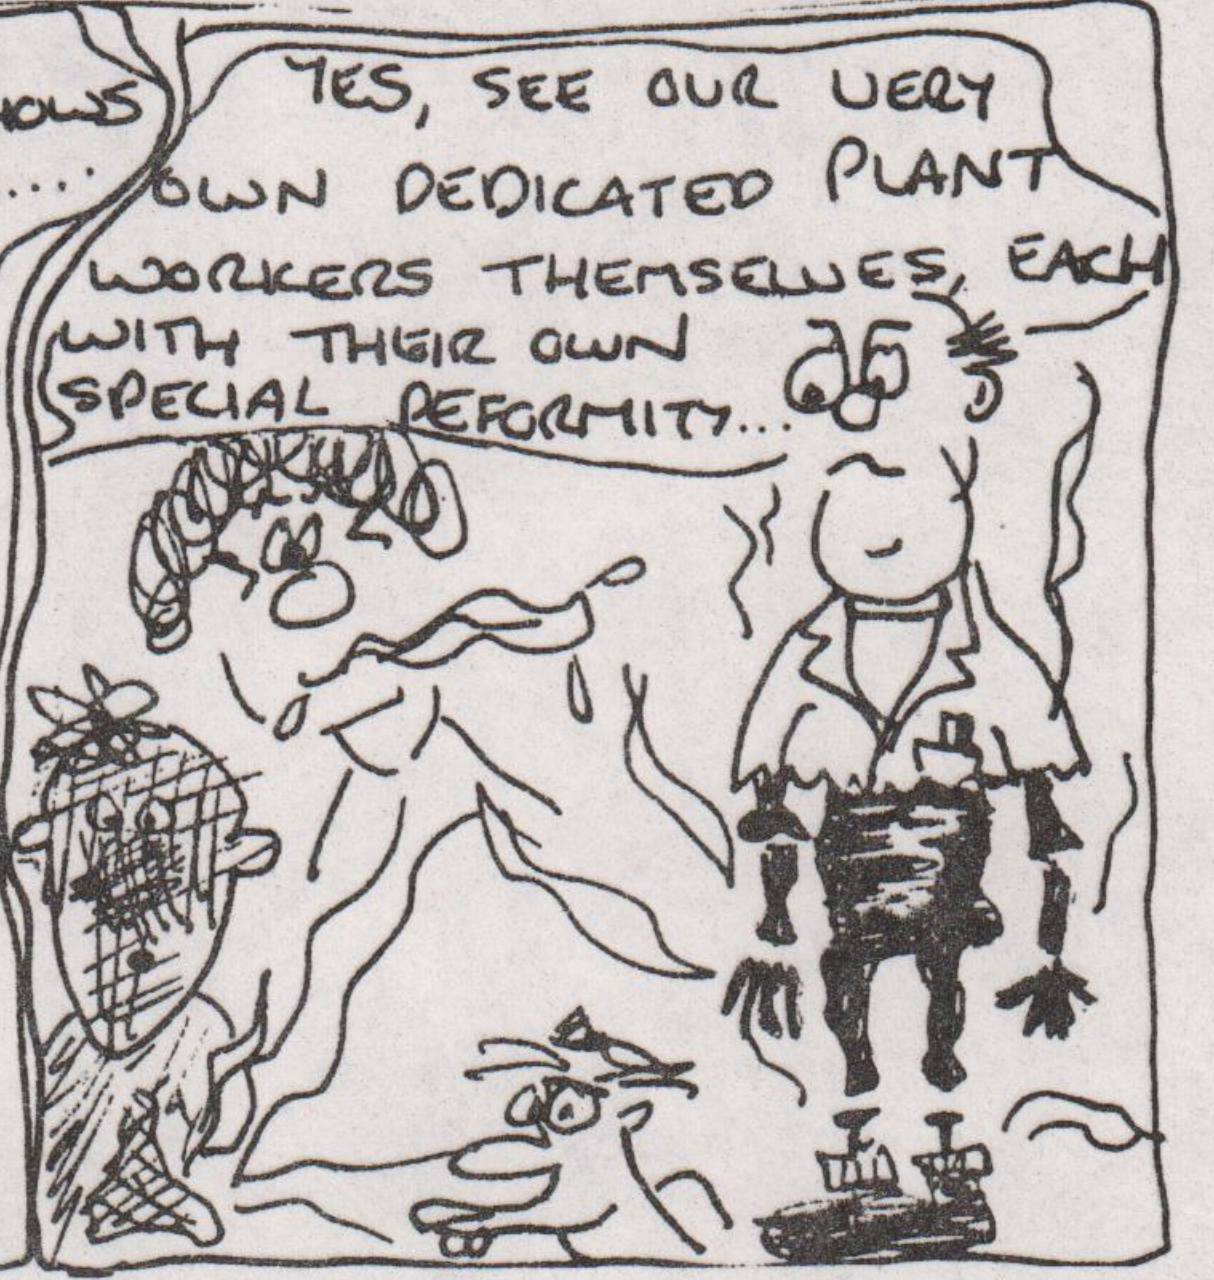 YES, SEE OUR VERY
OWN DEDICATED PLANT
WORKERS THEMSELVES, EACH
WITH THEIR OWN
SPECIAL DEFORMITY...